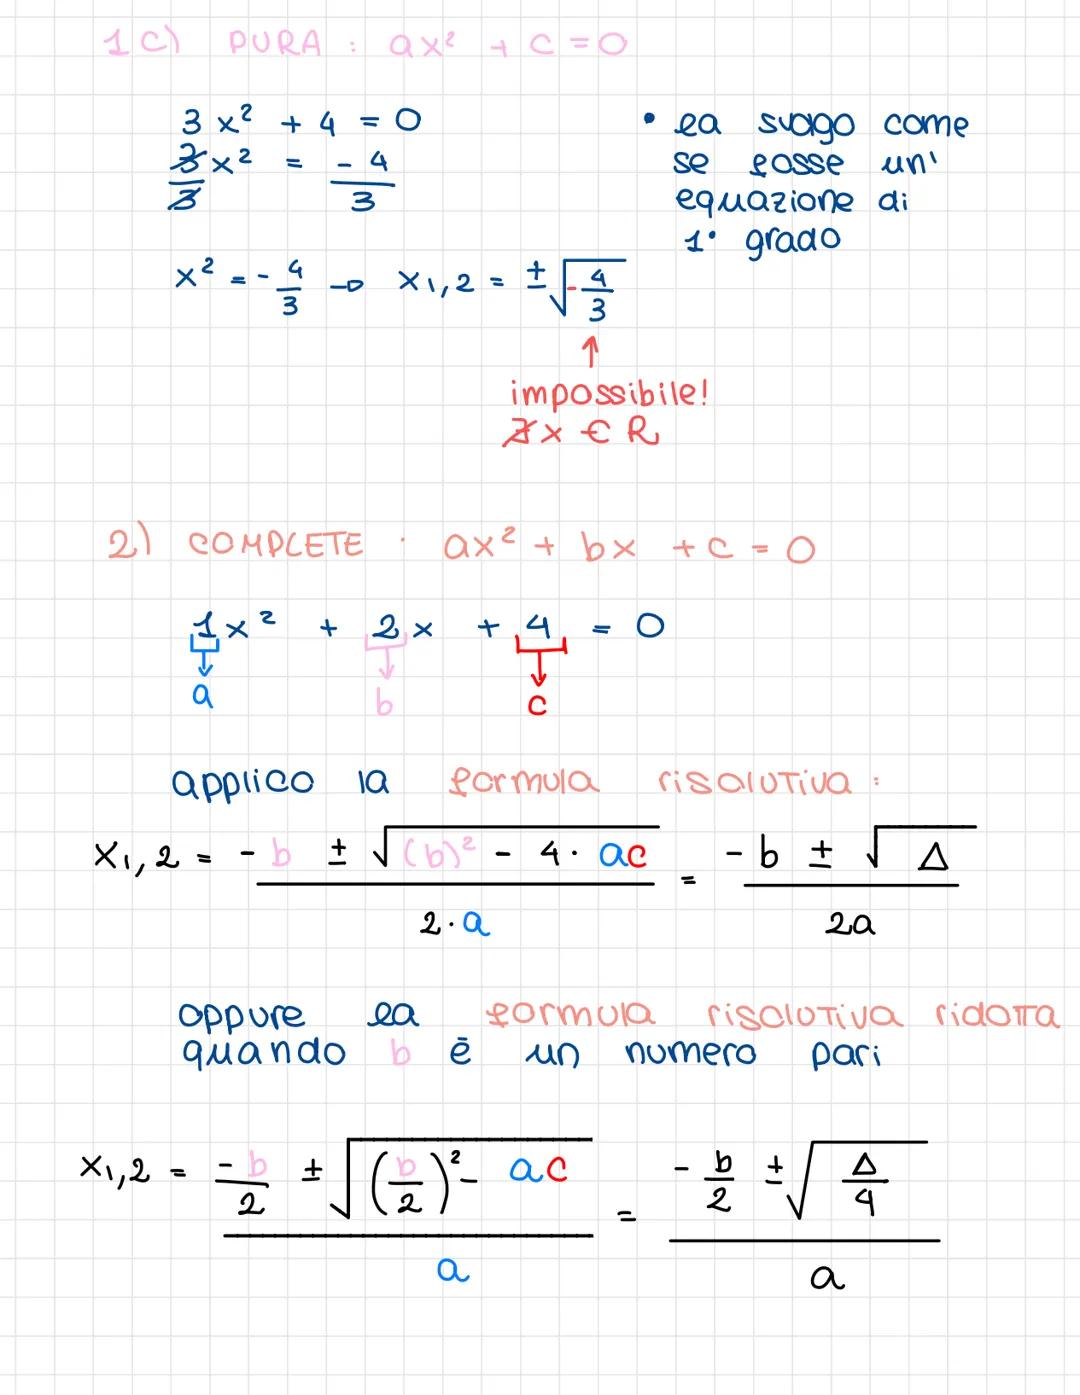 1c) PURA : ax² + c = 0
3x² + 4 = 0
3/3 x² = -4/3
x² = -4/3 → x1,2 = ±√-4/3
• la svolgo come
se fosse un'
equazione di
1° grado
↑
impossibile!
∄ x ∈ R
2) COMPLETE : ax² + bx + c = 0
1x² + 2x + 4 = 0
a b c
applico la formula risolutiva :
x1,2 = -b ± √(b)² - 4·ac / 2·a = -b ± √Δ / 2a
oppure la formula risolutiva ridotta
quando b è un numero pari
x1,2 = -b/2 ± √(b/2)² - ac / a = -b/2 ± √Δ/4 / a